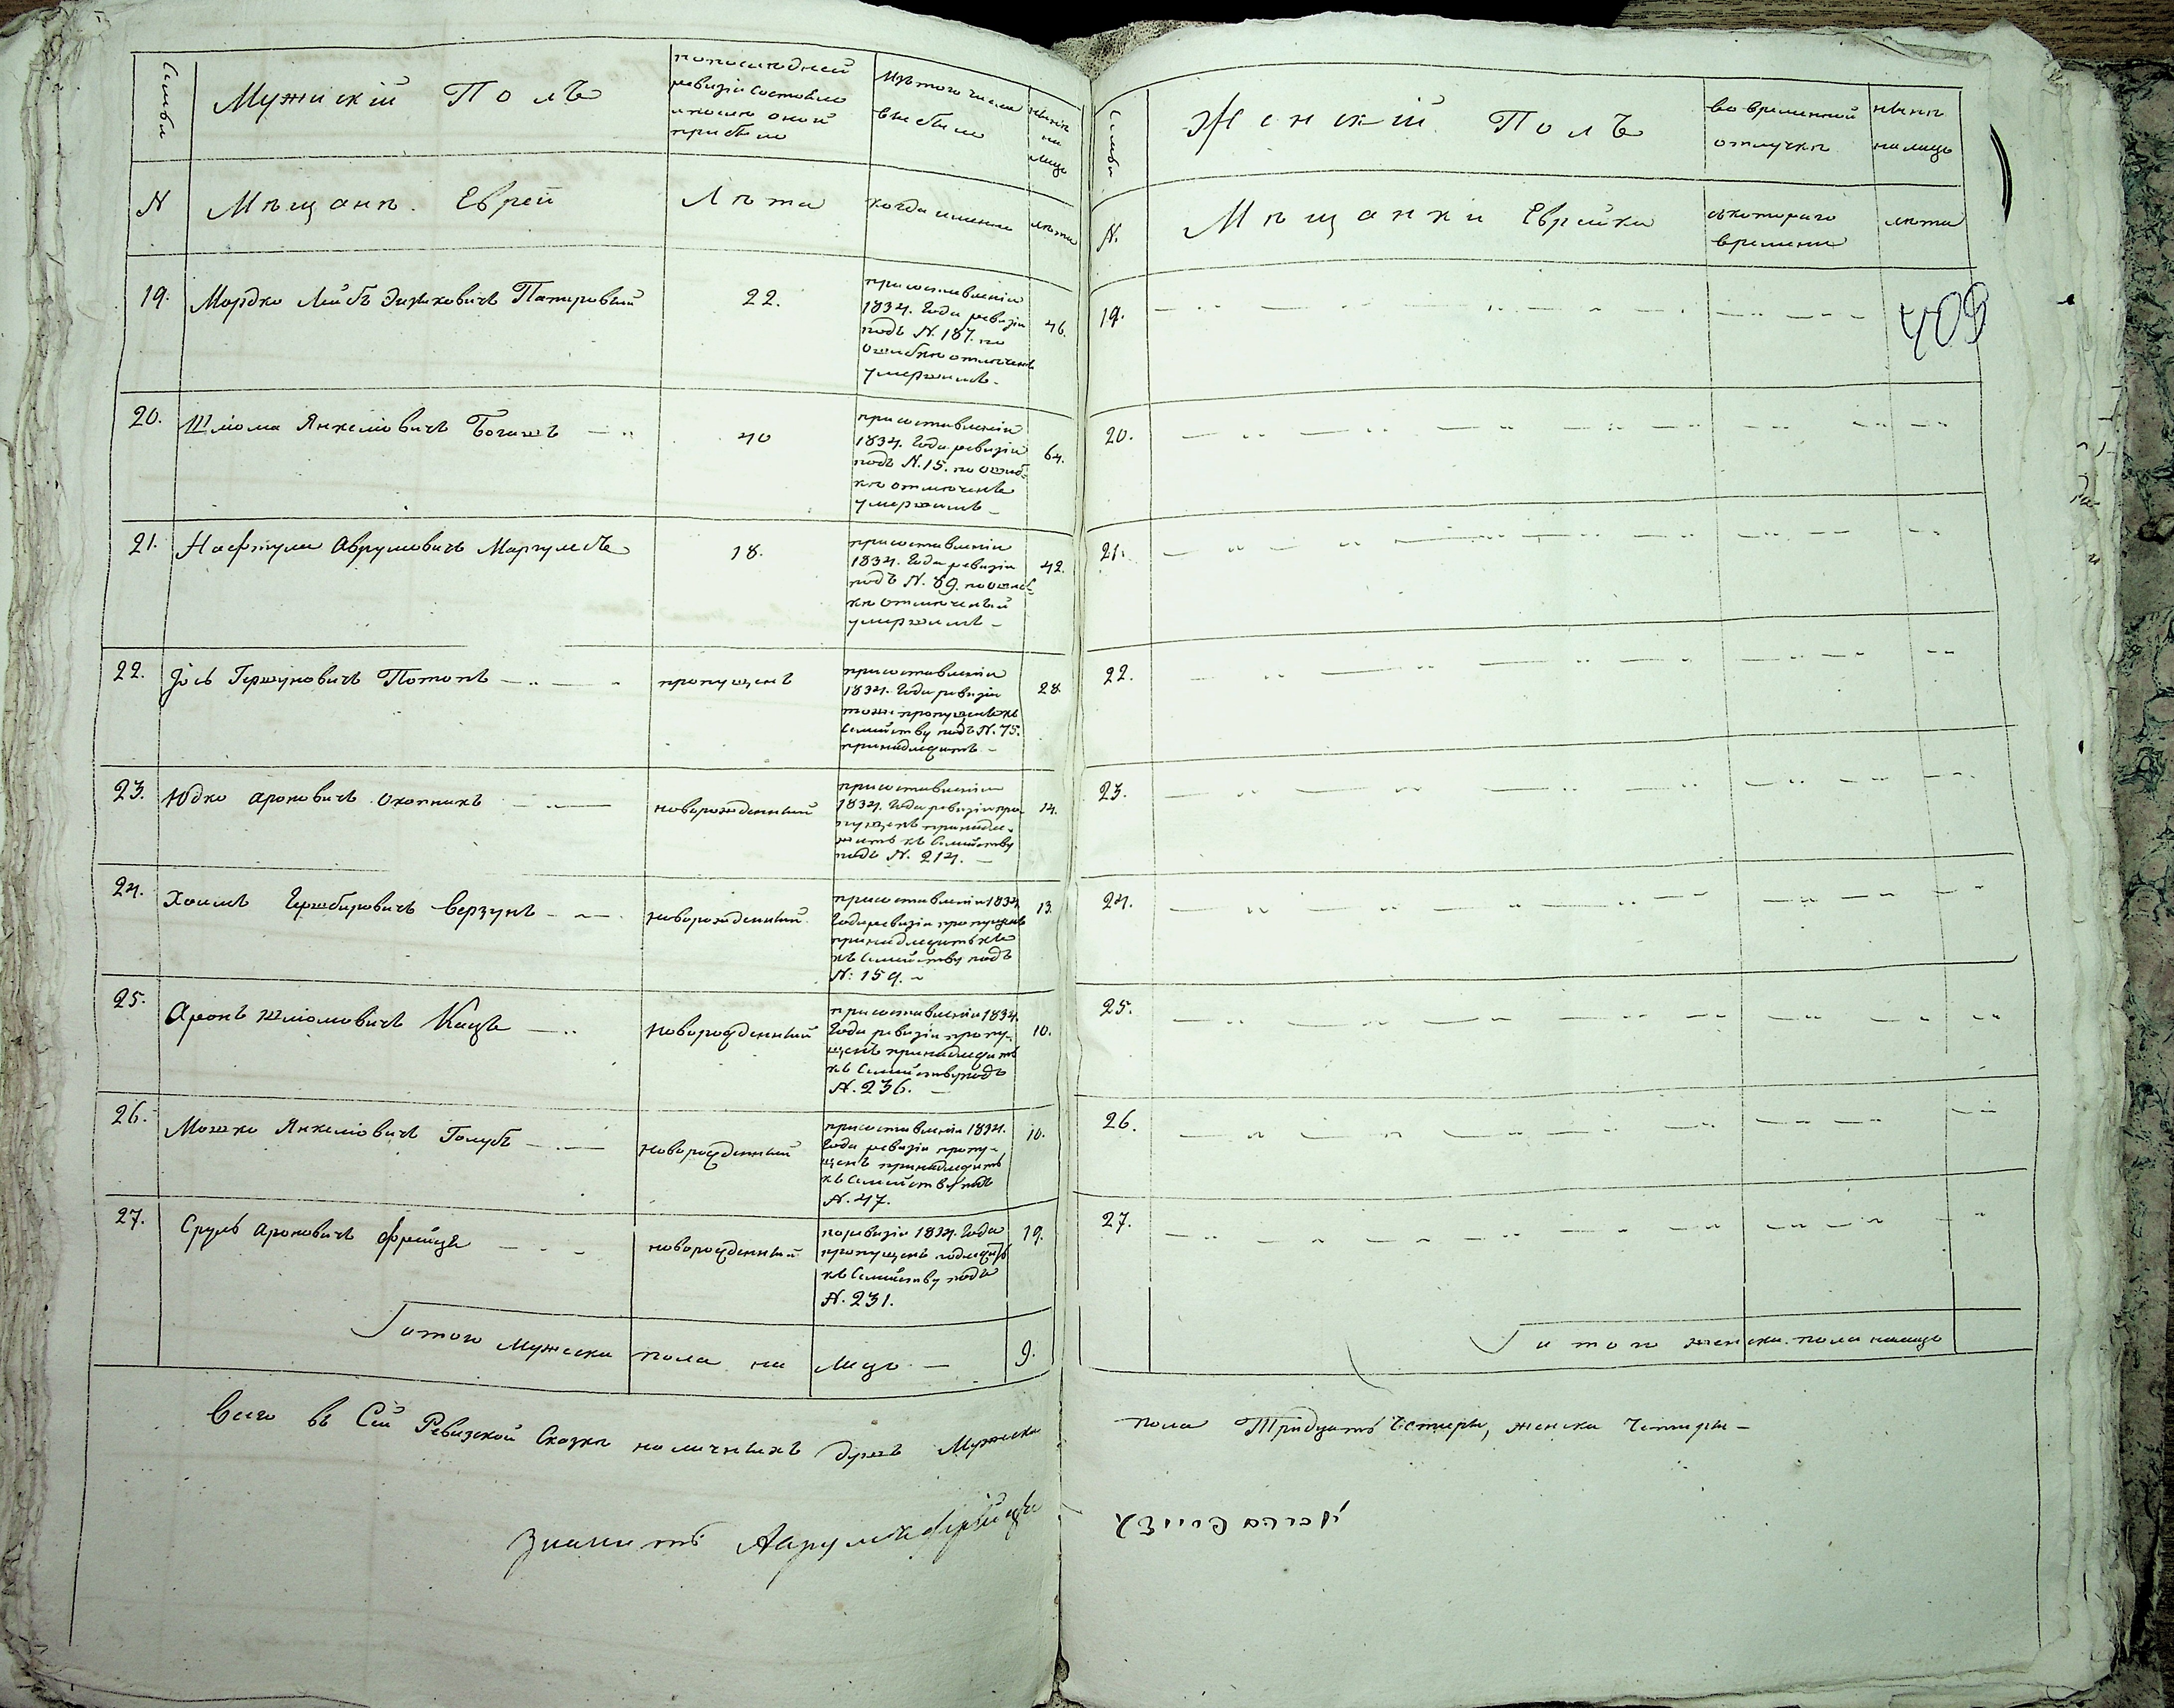 Семьи
Мужискій Полъ
попоследней
ревизіи состояло
и после оной
прибыло
Изтого числа
выбыло
ныне
на
лице
N
Мещане. Еврей
Лета
когда именно
лета
19.
Мордко Лейбъ Зизиковичъ Папировый
22.
присоставленіи
1834. Года ревизіи
подъ N. 187. по
ошибке отмеченъ
умершимъ -
46.
20.
Шлiома Янкелiовичъ Богашъ
40
присоставленіи
1834. Года ревизіи
подъ N. 15. по ошиб-
ке отмеченъ
умершимъ -
64.
21.
Нафтула Аврумовичъ Маргулесъ
18.
присоставленіи
1834. Года ревизіи
подъ N. 89. поошиб-
ке отмеченый
умершимъ -
42.
22.
Іось Гершуновичъ Потопъ
пропущенъ
присоставленіи
1834. Года ревизіи
тоже пропущенъ къ
Семейству подъ N. 75.
принадлежитъ -
28.
23.
Юдко Ароновичъ Охотникъ
новорожденный
присоставленіи
1834. Года ревизіи про-
пущенъ принадле-
житъ къ Семейству
подъ N. 214. -
14.
24.
Хаимъ Гершберовичъ Верзунъ
новорожденный
присоставленіи 1834.
Года ревизіи пропущенъ
принадлежитъ къ
къ Семейству подъ
N: 159. -
13.
25.
Аронъ Шлiомовичъ Кацъ
новорожденный
присоставленіи 1834.
Года ревизіи пропу-
щенъ принадлежитъ
къ Семейству подъ
N. 236. -
10.
26.
Мошко Янкелiовичъ Голубъ
новорожденный
присоставленіи 1834.
Года ревизіи пропу-
щенъ принадлежитъ
къ Семейству подъ
N. 47.
10.
27.
Сруль Ароновичъ Фрейцъ
новорожденный
поревизіи 1834. Года
пропущенъ
къ Семейству подъ
N. 231.
19.
Итого Мужеска пола на лицо -
9.
Всего въ Сей Ревизской Сказке наличныхъ душъ Мужеска
Семьи
Женскій Полъ
во временной
отлучке
ныне
налицо
N.
Мещанки Еврейки
скотораго
времени
лета
409
19.
20.
21.
22.
23.
24.
25.
26.
27.
Итого женска пола налицо
пола Тридцать Четыри, женска Четыри -
אברהם פרייצא